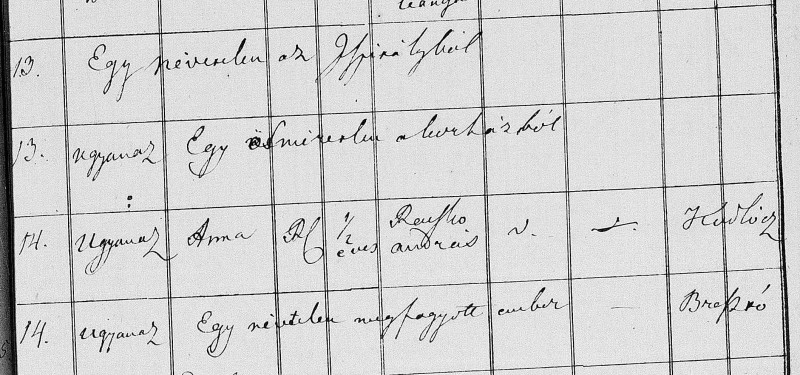 13. Egy névtelen az Ispitályból
13. Ugyanaz Egy ösmeretlen a korházból
14. Ugyanaz Anna RC 1/2 éves Raffko andreis v. Kudlócz
14. Ugyanaz Egy névtelen megfagyott ember — Brezró